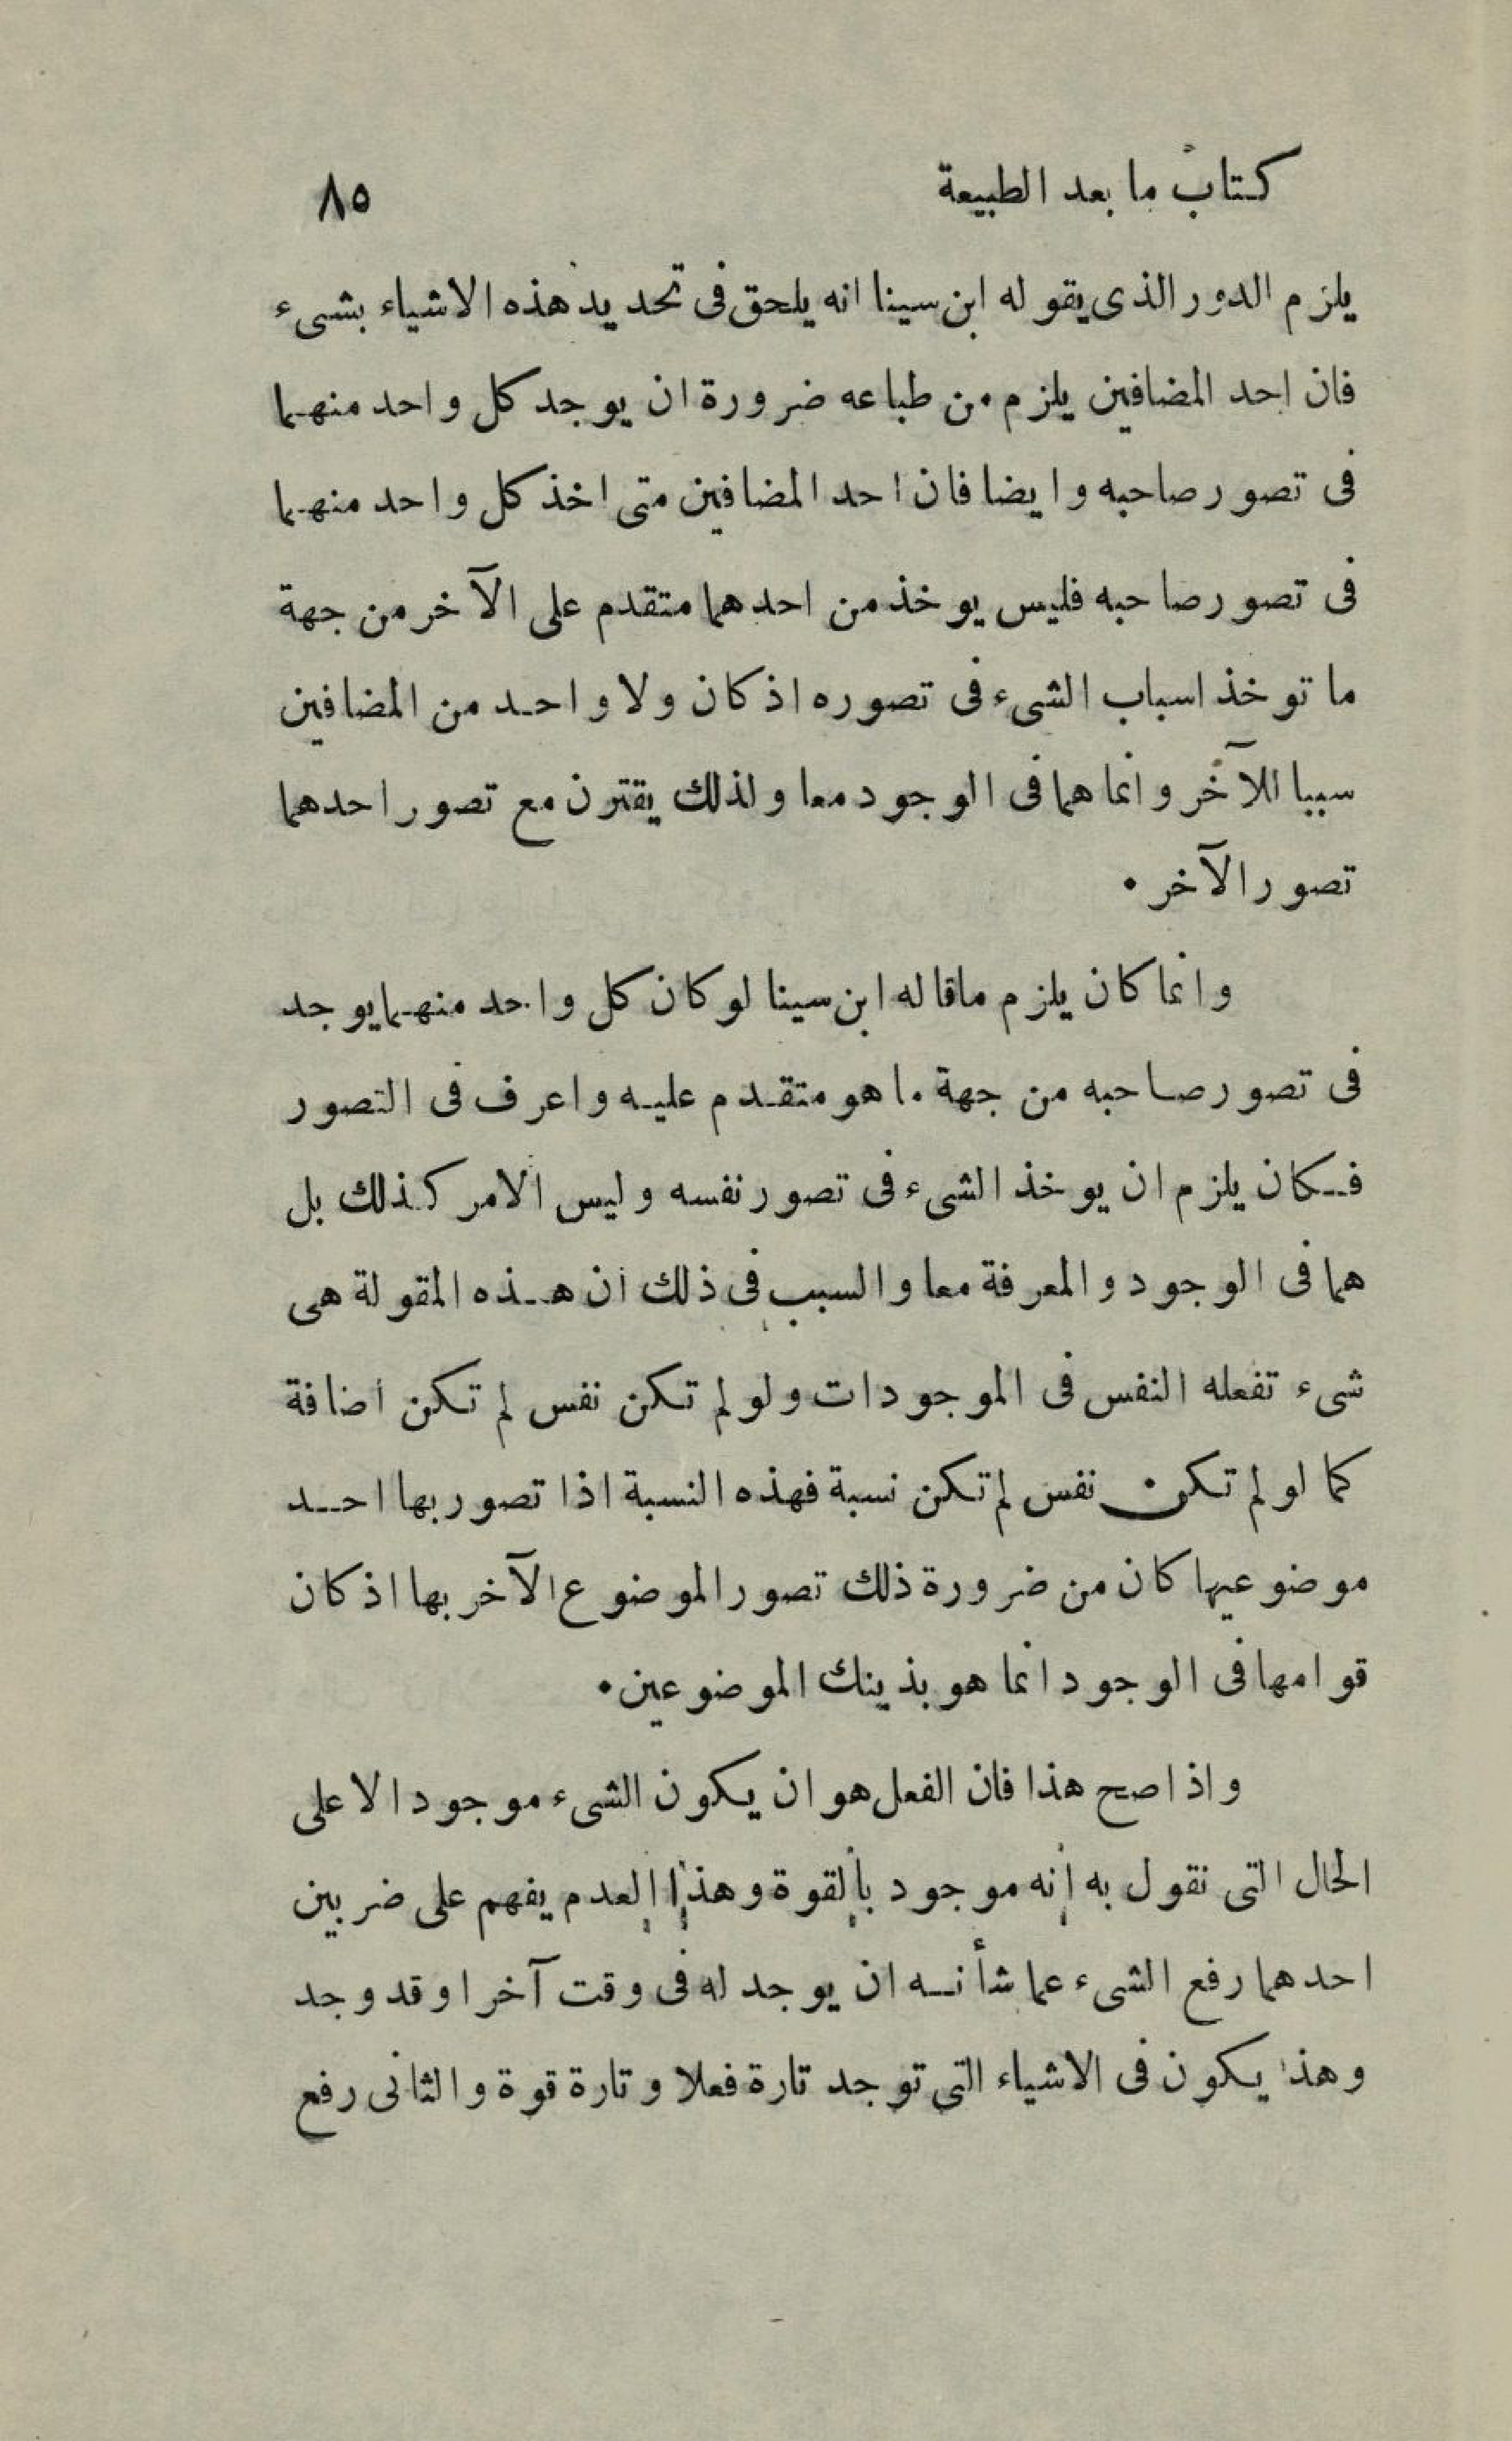 كتاب ما بعد الطبيعة ٨٥
يلزم الدور الذى يقوله ابن سينا انه يلحق فى تحديد هذه الاشياء بشىء
فان احد المضافين يلزم من طباعه ضرورة ان يوجد كل واحد منهما
فى تصور صاحبه وايضا فان احد المضافين متى اخذ كل واحد منهما
فى تصور صاحبه فليس يوخذ من احدهما متقدم على الآخر من جهة
ما توخذ اسباب الشىء فى تصوره اذ كان ولا واحد من المضافين
سببا للآخر وانما هما فى الوجود معا ولذلك يقترن مع تصور احدهما
تصور الآخر ٠
وانما كان يلزم ماقاله ابن سينا لو كان كل واحد منهما يوجد
فى تصور صاحبه من جهة ما هو متقدم عليه واعرف فى التصور
فكان يلزم ان يوخذ الشىء فى تصور نفسه وليس الامر كذلك بل
هما فى الوجود والمعرفة معا والسبب فى ذلك ان هذه المقولة هى
شىء تفعله النفس فى الموجودات ولو لم تكن نفس لم تكن اضافة
كما لو لم تكن نفس لم تكن نسبة فهذه النسبة اذا تصور بها احد
موضوعيها كان من ضرورة ذلك تصور الموضوع الآخر بها اذ كان
قوامها فى الوجود انما هو بذينك الموضوعين ٠
واذا صح هذا فان الفعل هو ان يكون الشىء موجودا لا على
الحال التى نقول به إنه موجود بالقوة وهذا العدم يفهم على ضربين
احدهما رفع الشىء عما شأنه ان يوجد له فى وقت آخر اوقد وجد
وهذا يكون فى الاشياء التى توجد تارة فعلا وتارة قوة والثانى رفع